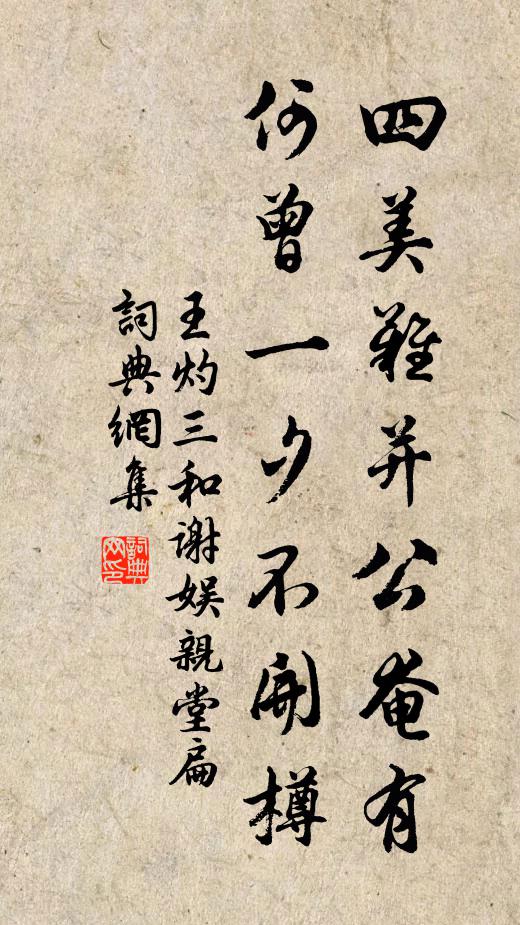 四美難并公奄有
何曾一夕不開樽
王灼三和谢娱親堂扁
詞典網集
詞典网印